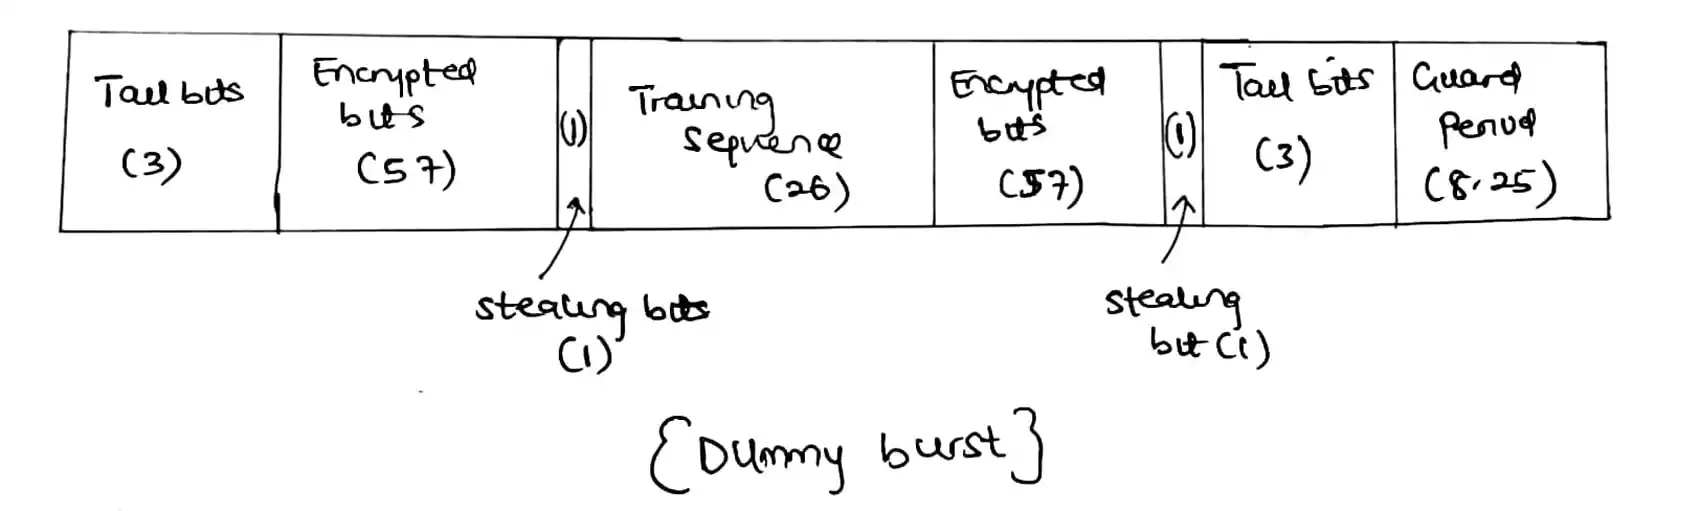 Tail bits
(3)
Encrypted
bits
(57)
(1)
Training
sequence
(26)
Encrypted
bits
(57)
(1)
Tail bits
(3)
Guard
Period
(8.25)
stealing bits
(1)
stealing
bit (1)
{Dummy burst}